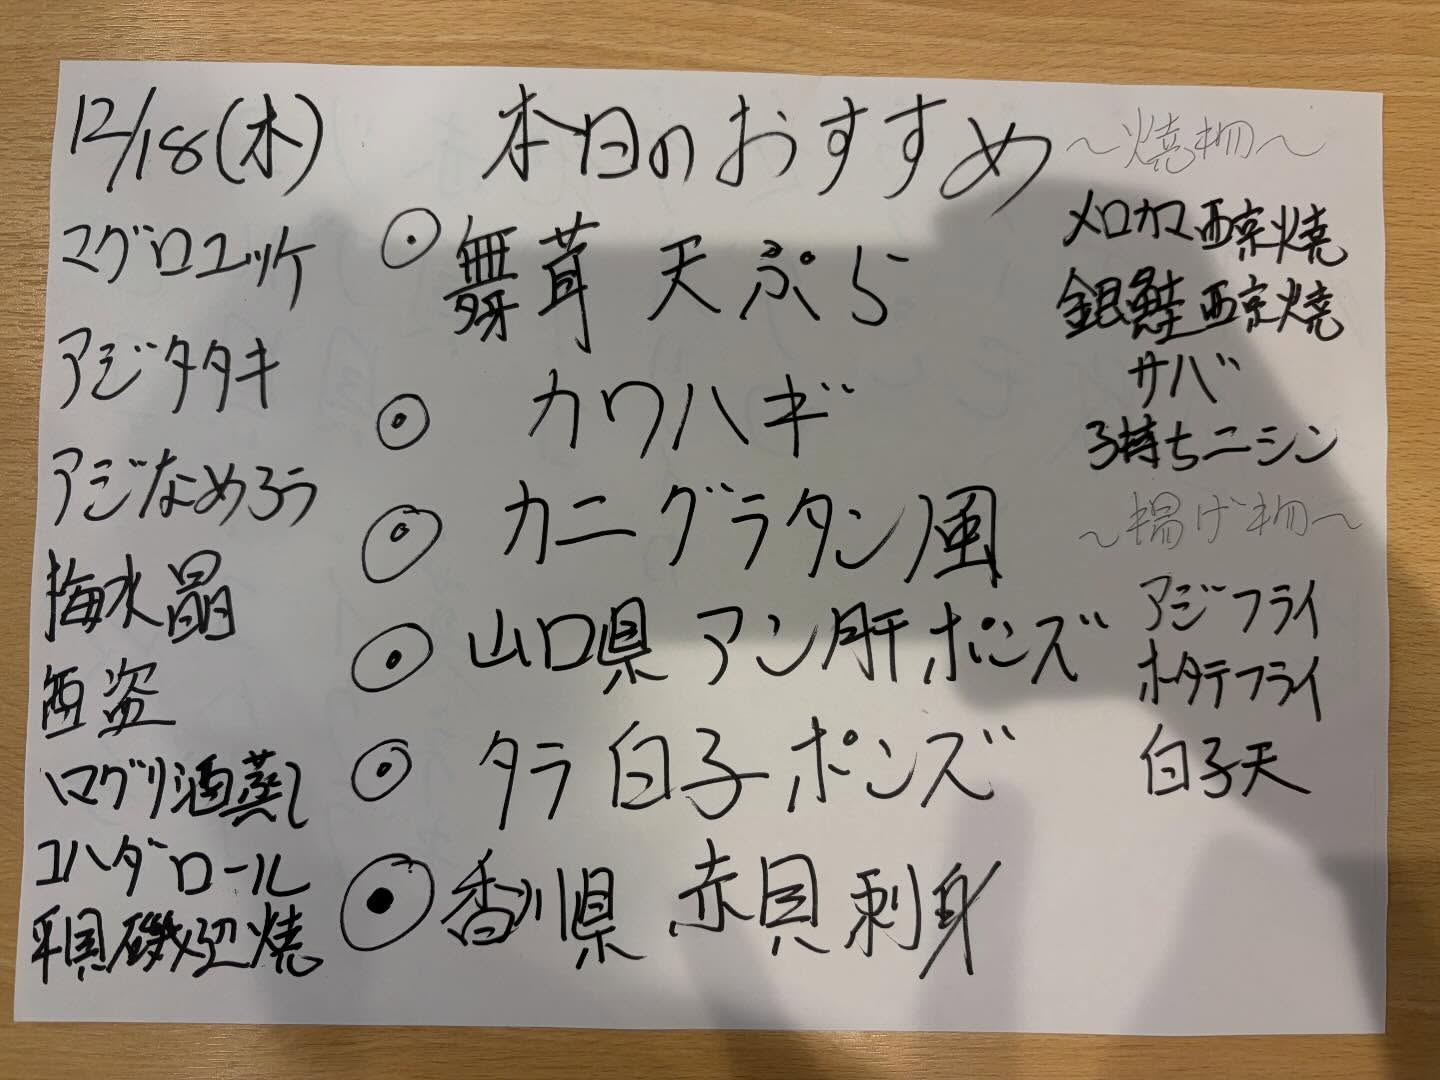 12/18(木)
本日のおすすめ
マグロユッケ
アジタタキ
アジなめろう
梅水晶
酒盗
ハマグリ酒蒸し
コハダロール
平貝磯辺焼
◎ 舞茸 天ぷら
◎ カワハギ
◎ カニグラタン風
◎ 山口県 アン肝ポンズ
◎ タラ白子ポンズ
◎ 香川県 赤貝刺身
～焼物～
メロカマ西京焼
銀鮭西京焼
サバ
子持ちニシン
～揚げ物～
アジフライ
ホタテフライ
白子天